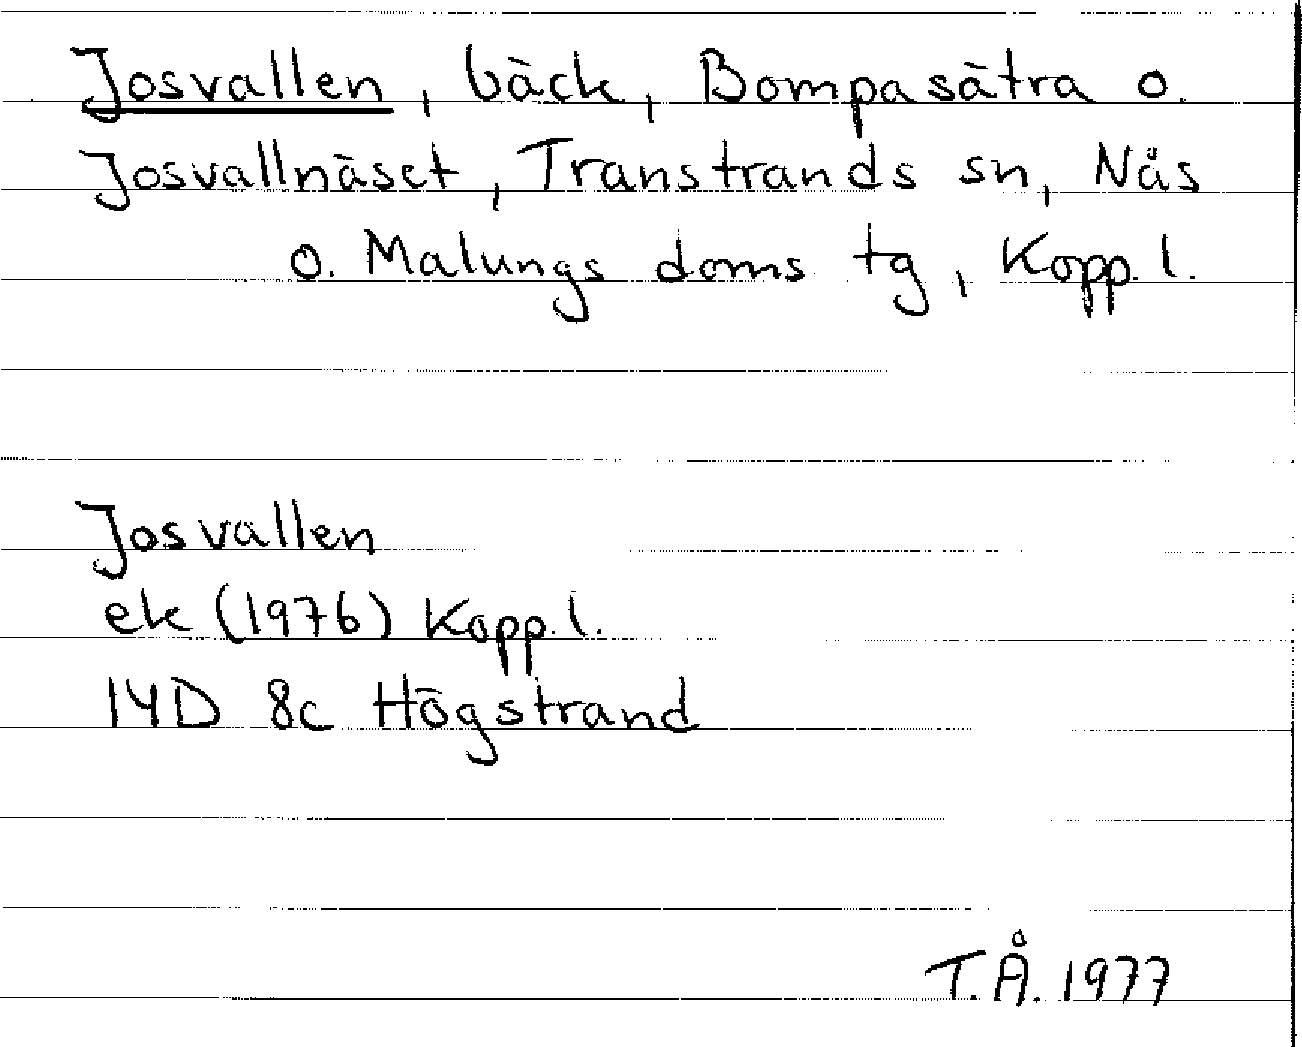 Josvallen, bäck, Bompasätra o.
Josvallnäset, Transtrands sn, Nås
o. Malungs doms tg, Kopp. l.
Josvallen
ek (1976) Kopp. l.
14D 8c Högstrand
T.Å. 1977